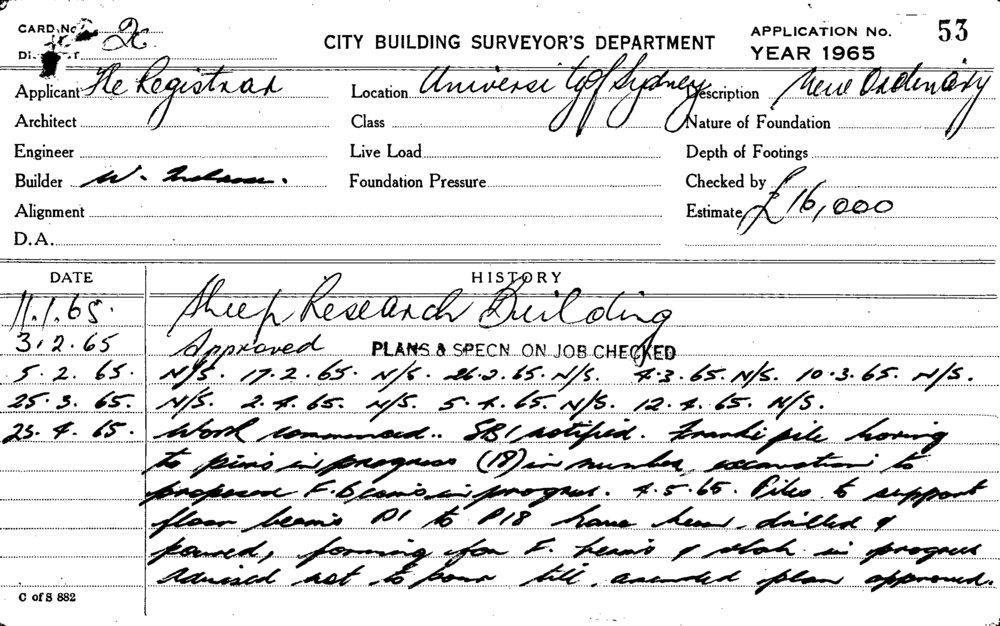 CARD No. 2c
CITY BUILDING SURVEYOR'S DEPARTMENT
APPLICATION No. 53
YEAR 1965
Applicant The Registrar Location University of Sydney Description New Ordinary
Architect Class Nature of Foundation
Engineer Live Load Depth of Footings
Builder W. Foundation Pressure Checked by
Alignment Estimate £16,000
D.A.
DATE HISTORY
11.1.65. Sheep Research Building
3.2.65 Approved PLANS & SPECN. ON JOB CHECKED
5.2.65. N/S. 17.2.65. N/S. 26.2.65. N/S. 4.3.65. N/S. 10.3.65. N/S.
25.3.65. N/S. 2.4.65. N/S. 5.4.65. N/S. 12.4.65. N/S.
23.4.65. Work commenced. SBI notified. Franki pile boring
to piers in progress (18) in number, excavation to
F. Beams in progress. 4.5.65. Piles to support
floor beams P1 to P18 have been drilled &
poured, forming for F. beams & slab in progress
Advised not to pour till amended plan approved.
C of S 882